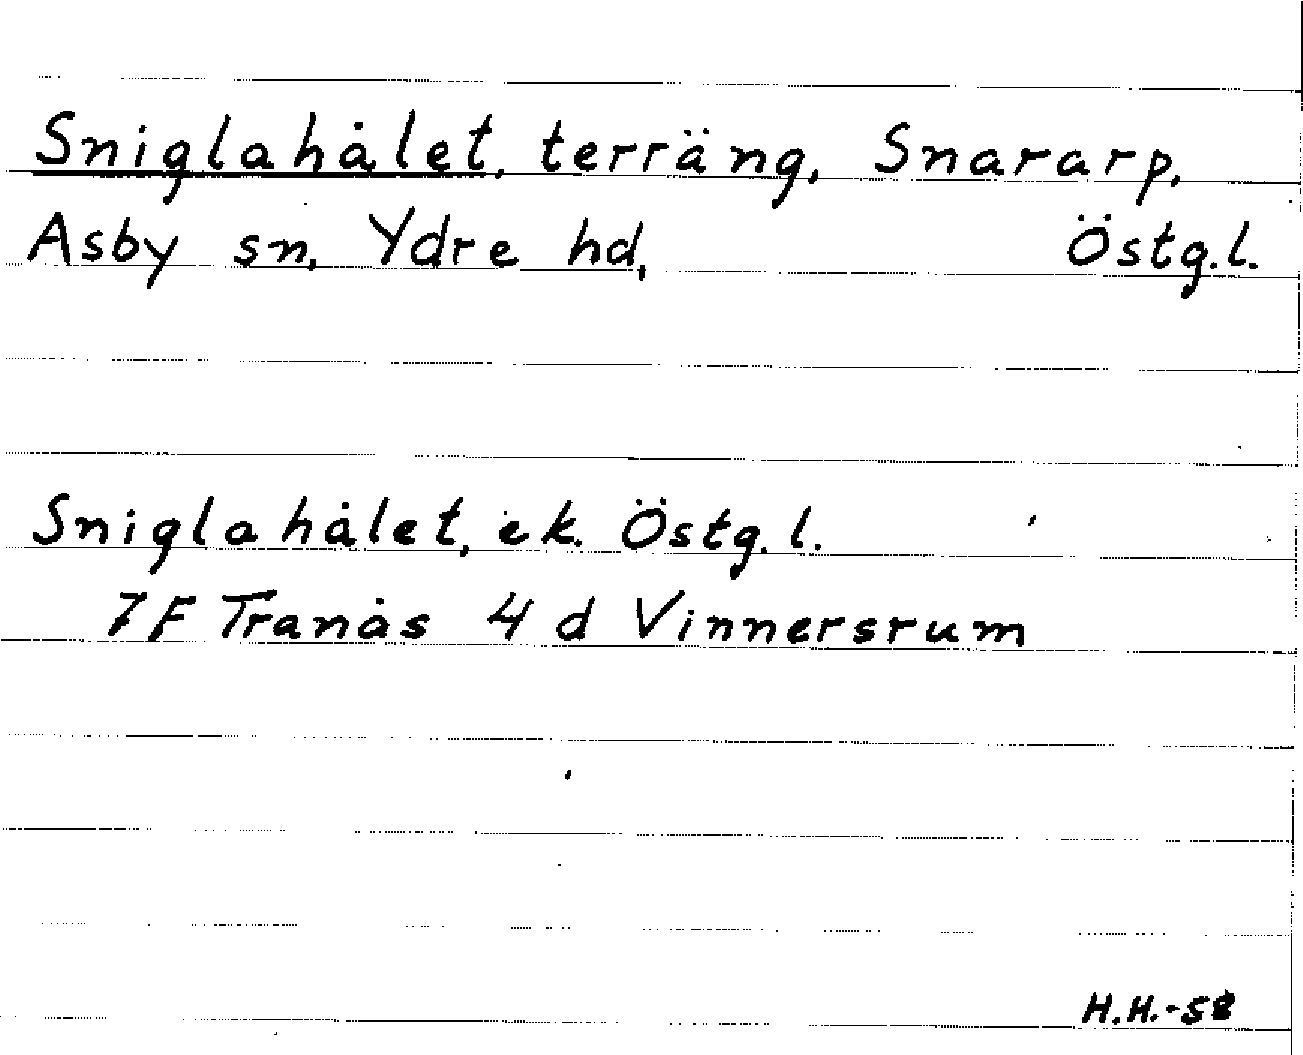 Sniglahålet, terräng, Snararp,
Asby sn, Ydre hd, Östg.l.
Sniglahålet, ek. Östg.l.
7F Tranås 4 d Vinnersrum
H.H.-58